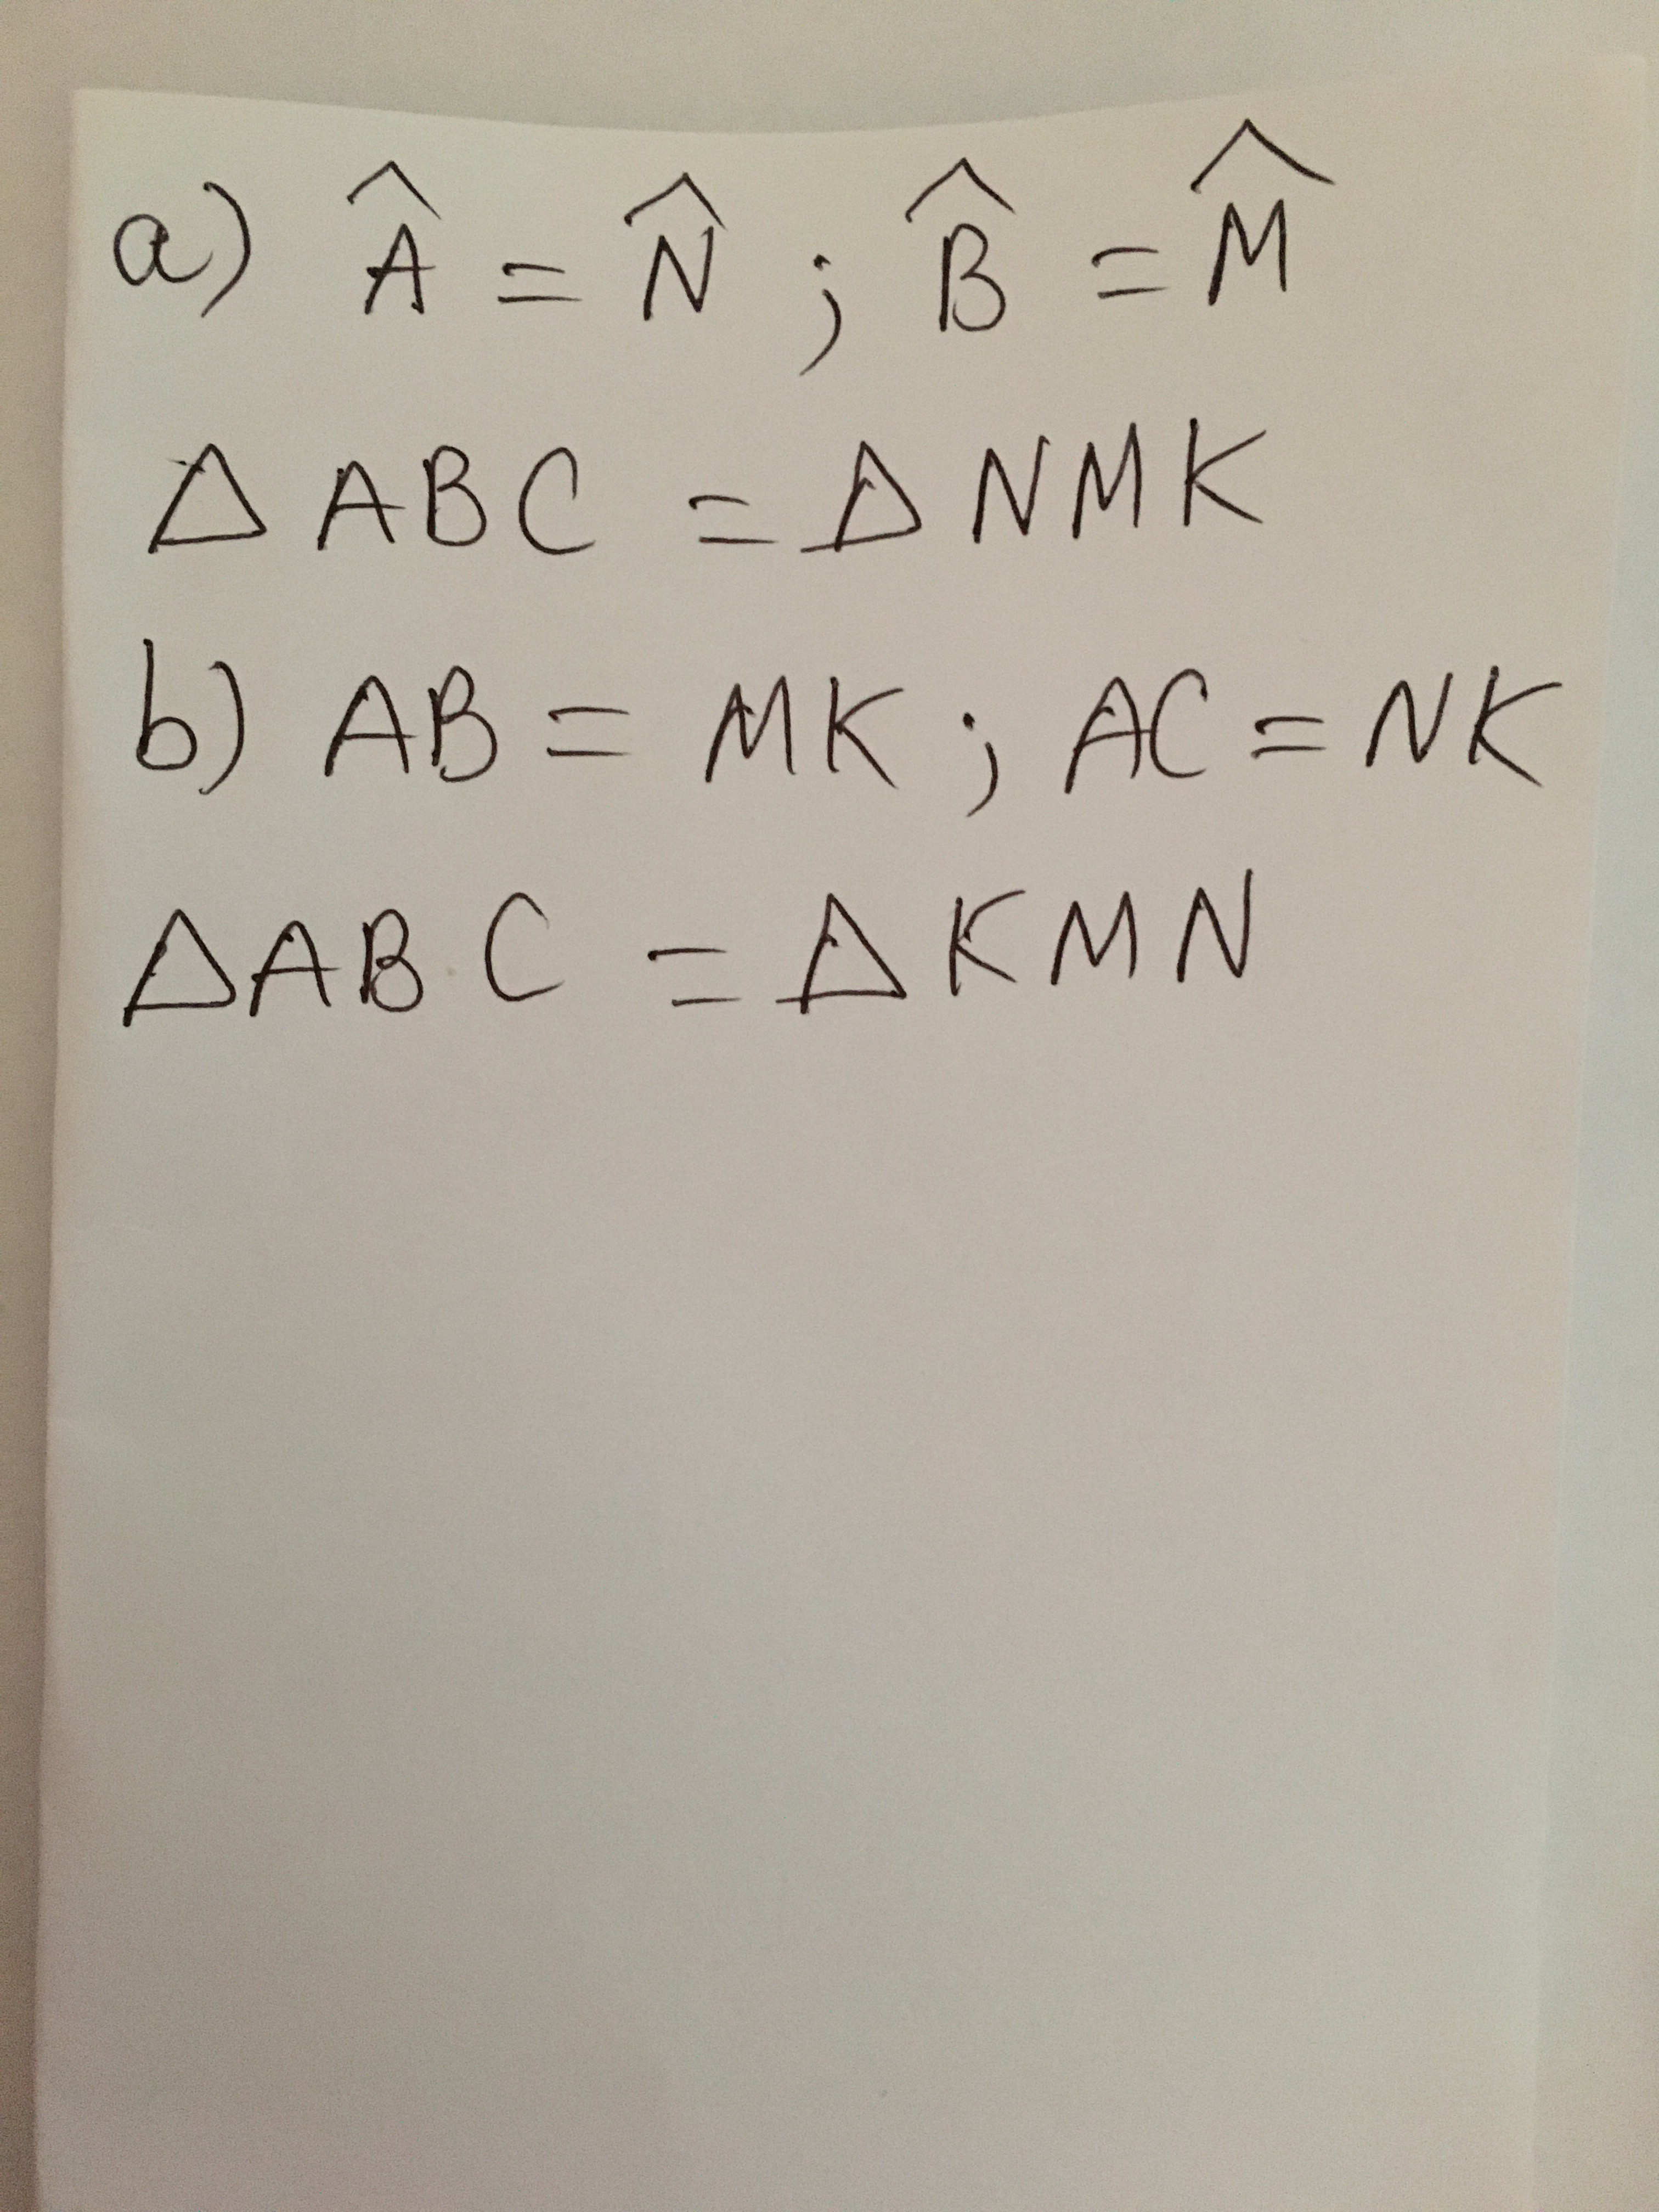 a) Â = N̂ ; B̂ = M̂
Δ ABC = Δ NMK
b) AB = MK ; AC = NK
ΔABC = Δ KMN